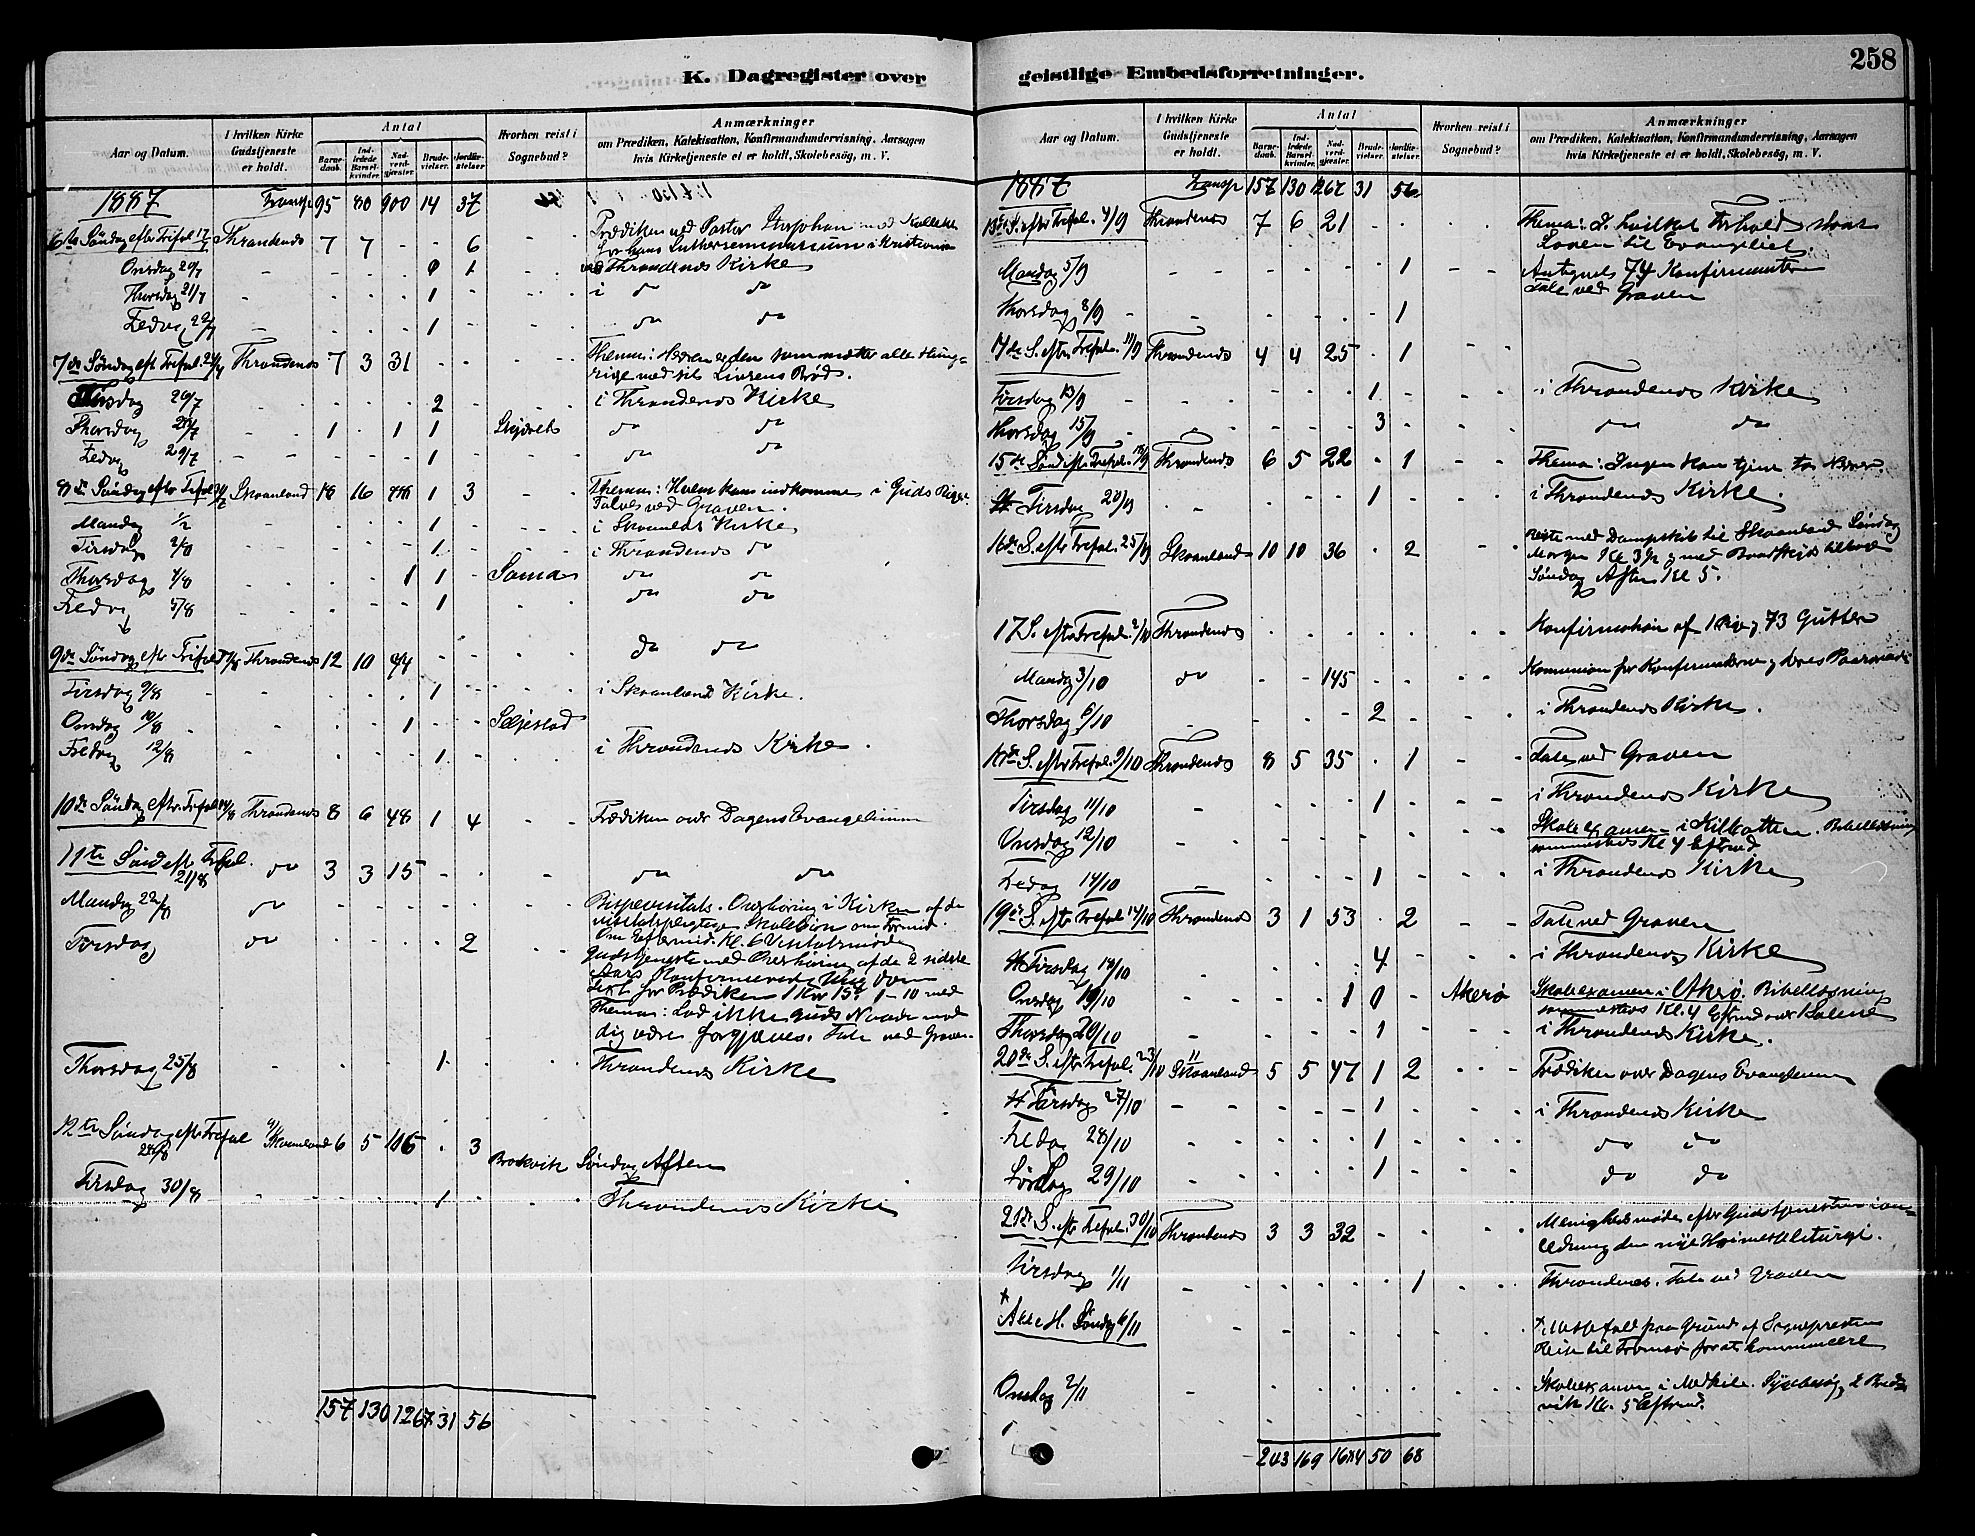 258
K. Dagregister over geistlige Embedsforretninger.
Aar og Datum.
I hvilken Kirke Gudstjeneste er holdt.
Antal
Barnedaab.
Indledede Barselkvinder.
Nadverdgjæster.
Brudevielser.
Jordfæstelser
Hvorhen reist i Sognebud?
Anmærkninger
om Prædiken, Katekisation, Konfirmandundervisning, Aarsagen
hvis Kirketjeneste ei er holdt, Skolebesøg, m. V.
1887 Transp 95 80 900 14 37
6te Søndag efter Trefol 17/7 Throndenes 7 7 - - 6 Prædiken ved Pastor med Kollekt
for hans Lutherseminarium i Kristiania
Onsdag 20/7 - - - - 1 ved Throndenes Kirke
Thorsdag 21/7 - - - 1 i do do
Fredag 22/7 - - - 1 do do
7de Søndag eft Trefol 24/7 Throndenes 7 3 31 - - Thema: Herren er den som mætter alle Hung-
rige med sit Livsens Brød.
Tirsdag 26/7 2 i Throndenes Kirke
Thorsdag 28/7 1 - 1 1 do do
Fredag 29/7 1 do do
8de Søndag efter Trefol 31/7 Skaanland 18 16 1 3 Thema: Hvem kan indkomme i Guds Rige.
Talves ved Graven.
Mandag 1/8 1 i Skaanland Kirke
Tirsdag 2/8 1 i Throndenes do
Thorsdag 4/8 1 1 Sama do do
Fredag 5/8 1 do do
do do
9de Søndag eft Trefol 7/8 Throndenes 12 10 44
Tirsdag 9/8 1 i Skaanland Kirke.
Onsdag 10/8 1 Seljestad
Fredag 12/8 1 i Throndenes Kirke.
10de Søndag eftr. Trefol 14/8 Throndenes 8 6 48 1 4 Prædiken over Dagens Evangelium
11te Sønd eft Trefol. 21/8 do 3 3 15 do do
Mandag 22/8 do Bispevisitats. Overhøring i Kirken af de
visitatspligtige Skolebørn om Formid.
Om Eftermid. Kl. 6 Visitatsmøde
Tirsdag do 2 Gudstjeneste med Overhøring af de 2 sidste
Aars Konfirmerede Ungdom
Text for Prædiken 1 Kor 15: 1-10 med
Thema: Lad ikke Guds Naade mod
dig være forgjæves. Tale ved Graven.
Thorsdag 25/8 1 Throndenes Kirke
12te Søndag efter Trefol 28/8 Skaanland 6 5 106 3
Brokvik Søndag Aften
Tirsdag 30/8 1 Throndenes Kirke
157 130 1267 31 56
Aar og Datum.
I hvilken Kirke Gudstjeneste er holdt.
Antal
Barnedaab.
Indledede Barselkvinder.
Nadverdgjæster.
Brudevielser.
Jordfæstelser.
Hvorhen reist i Sognebud?
Anmærkninger
om Prædiken, Katekisation, Konfirmandundervisning, Aarsagen
hvis Kirketjeneste ei er holdt, Skolebesøg, m. V.
1887 Transp 157 130 1267 31 56
13de S. efter Trefol. 4/9 Throndenes 7 6 21 Thema: I hvilket Forhold staar
Loven til Evangeliet.
Mandag 5/9 1 Antegnet 74 Konfirmanter
Tale ved Graven
Thorsdag 8/9 1
14de S. efter Trefol. 11/9 Throndenes 4 4 25 1
Tirsdag 13/9 1 i Throndenes Kirke
Thorsdag 15/9 3 do do
15de Sønd efter Trefol. 18/9 Throndenes 6 5 22 1 Thema: Ingen kan tjene to Herrer.
Tirsdag 20/9 1 i Throndenes Kirke.
16de S. efter Trefol. 25/9 Skaanland 10 10 36 2 Reiste med Dampskib til Skaanland Søndag
Morgen Kl 3 og med tilbage
Søndag Aften Kl 5.
17 S. efter Trefol. 2/10 Throndenes Konfirmation af Pig 73 Gutter
Mandag 3/10 do 145 Kommunion for Konfirmanterne og deres Paarørende
Thorsdag 6/10 2 i Throndenes Kirke.
18de S. efter Trefol. 9/10 Throndenes 8 5 35 1 Tale ved Graven
Tirsdag 11/10 1 i Throndenes Kirke
Onsdag 12/10 Skoleexamen i Kilbotten. Bibellæsning
sammesteds Kl 4 Eftmd.
Fredag 14/10 1 i Throndenes Kirke
19de S. efter Trefol. Throndenes 3 1 53 2 Tale ved Graven
Tirsdag 18/10 4 i Throndenes Kirke
Onsdag 19/10 1 0 Akerø Skoleexamen i Akerø. Bibellæsning
sammesteds Kl. 4 Eftmd over
Thorsdag 20/10 1 i Throndenes Kirke.
20de S. efter Trefol. 23/10 Skaanland 5 5 47 1 2 Prædiken over Dagens Evangelium
Torsdag 27/10 1 i Throndenes Kirke
Fredag 28/10 1 do do
Lørdag 29/10 1 do do
21de S. eftr Trefol. 30/10 Throndenes 3 3 32 Menighedsmøde efter Gudstjenesten i an-
ledning den nye Høimesseliturgi.
Tirsdag 1/11 1 Throndenes. Tale ved Graven
* Alle H. Søndag 6/11 * Messefald paa Grund af Sogneprestens
Reise til Tromsø for at kommunicere
Onsdag 2/11 Skoleexamen i Medkile. Sygebesøg
vik Kl. 5 Eftmd.
243 169 50 68